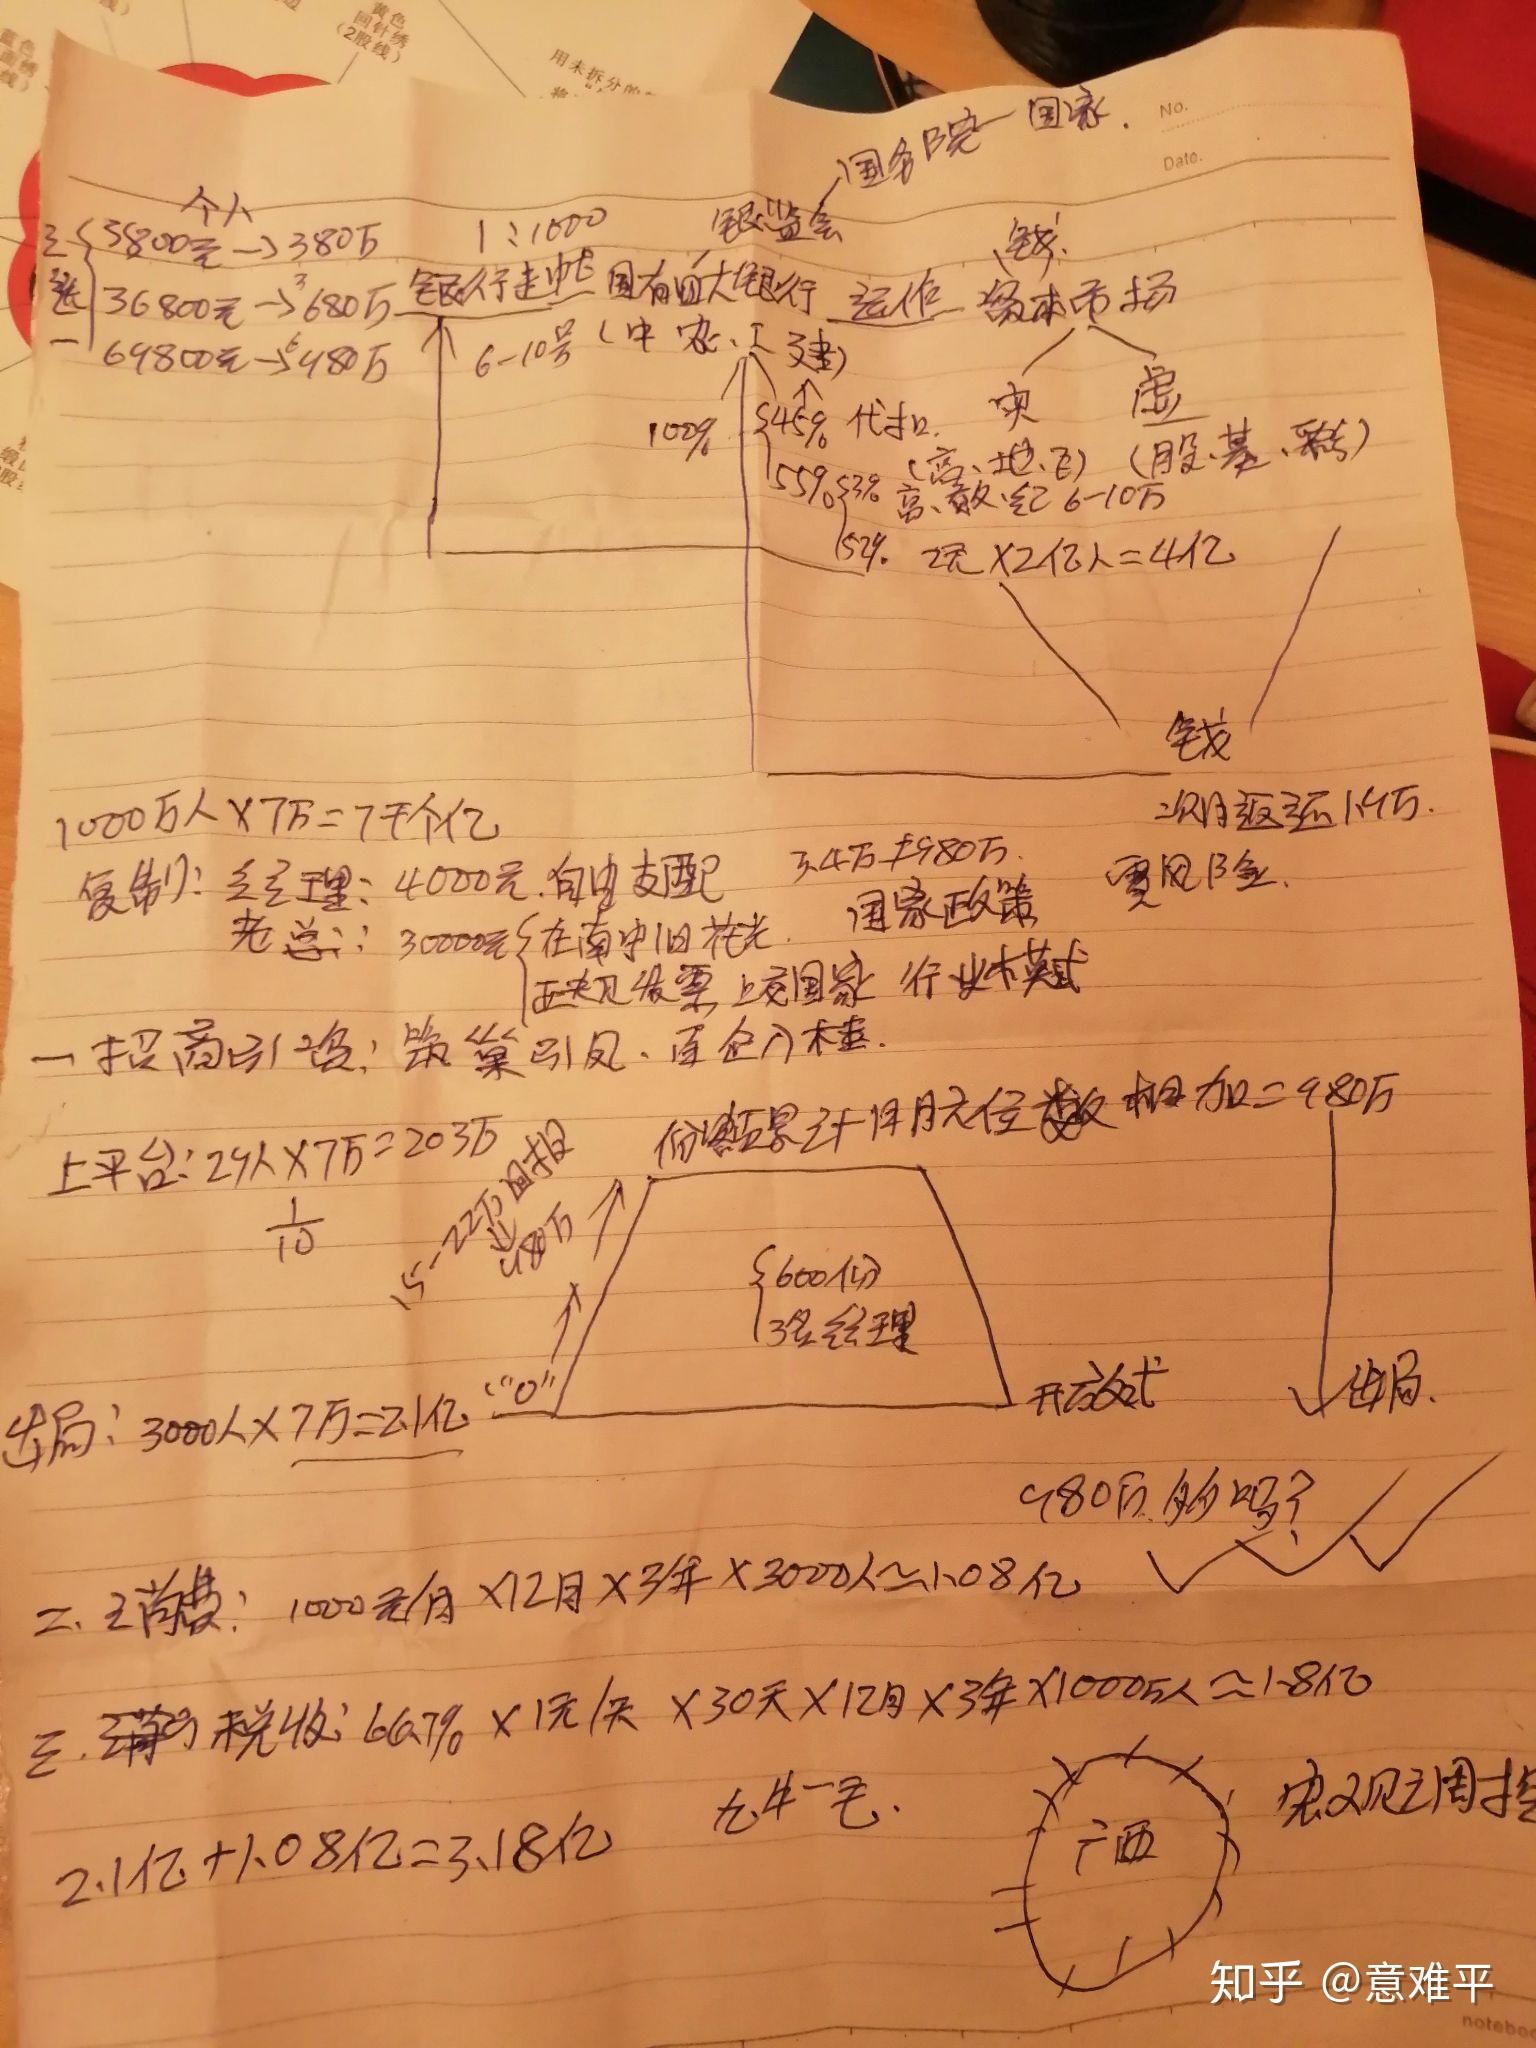 黄色
回针绣
(2股线)
蓝色
用未拆分的
No.
Date.
国务院一国家.
个人
1:1000
银监会
钱
三选一
3800元→380万
36800元→3680万
69800元→6980万
银行走帐 国有四大银行 运作 资本市场
6-10号
(中.农.工.建)
实 虚
100%
45% 代扣.
(高.地.飞) (股.基.彩)
55%
3% 高.散.红 6-10万
52% 2元×2亿人=4亿
钱
1000万人×7万=7千个亿
次月返还1.9万.
复制: 经理: 4000元.自由支配
3.4万≠980万.
零风险.
老总: 30000元 在南中旧花光.
国家政策
正规发票上交国家 行业木模式
一招商引资: 筑巢引凤.百企入桂.
上平台: 29人×7万=203万
1/10
15-22万回报
980万
份额累计 个位数相加=980万
600份
3名经理
"0"
开放式
出局.
出局: 3000人×7万=2.1亿
980万.多吗?
二.消费: 1000元/月×12月×3年×3000人≈1.08亿
三.税收: 66.7%×1元/天×30天×12月×3年×1000万人≈1.8亿
九牛一毛.
广西
宏观调控
2.1亿+1.08亿=3.18亿
知乎 @意难平
notebook